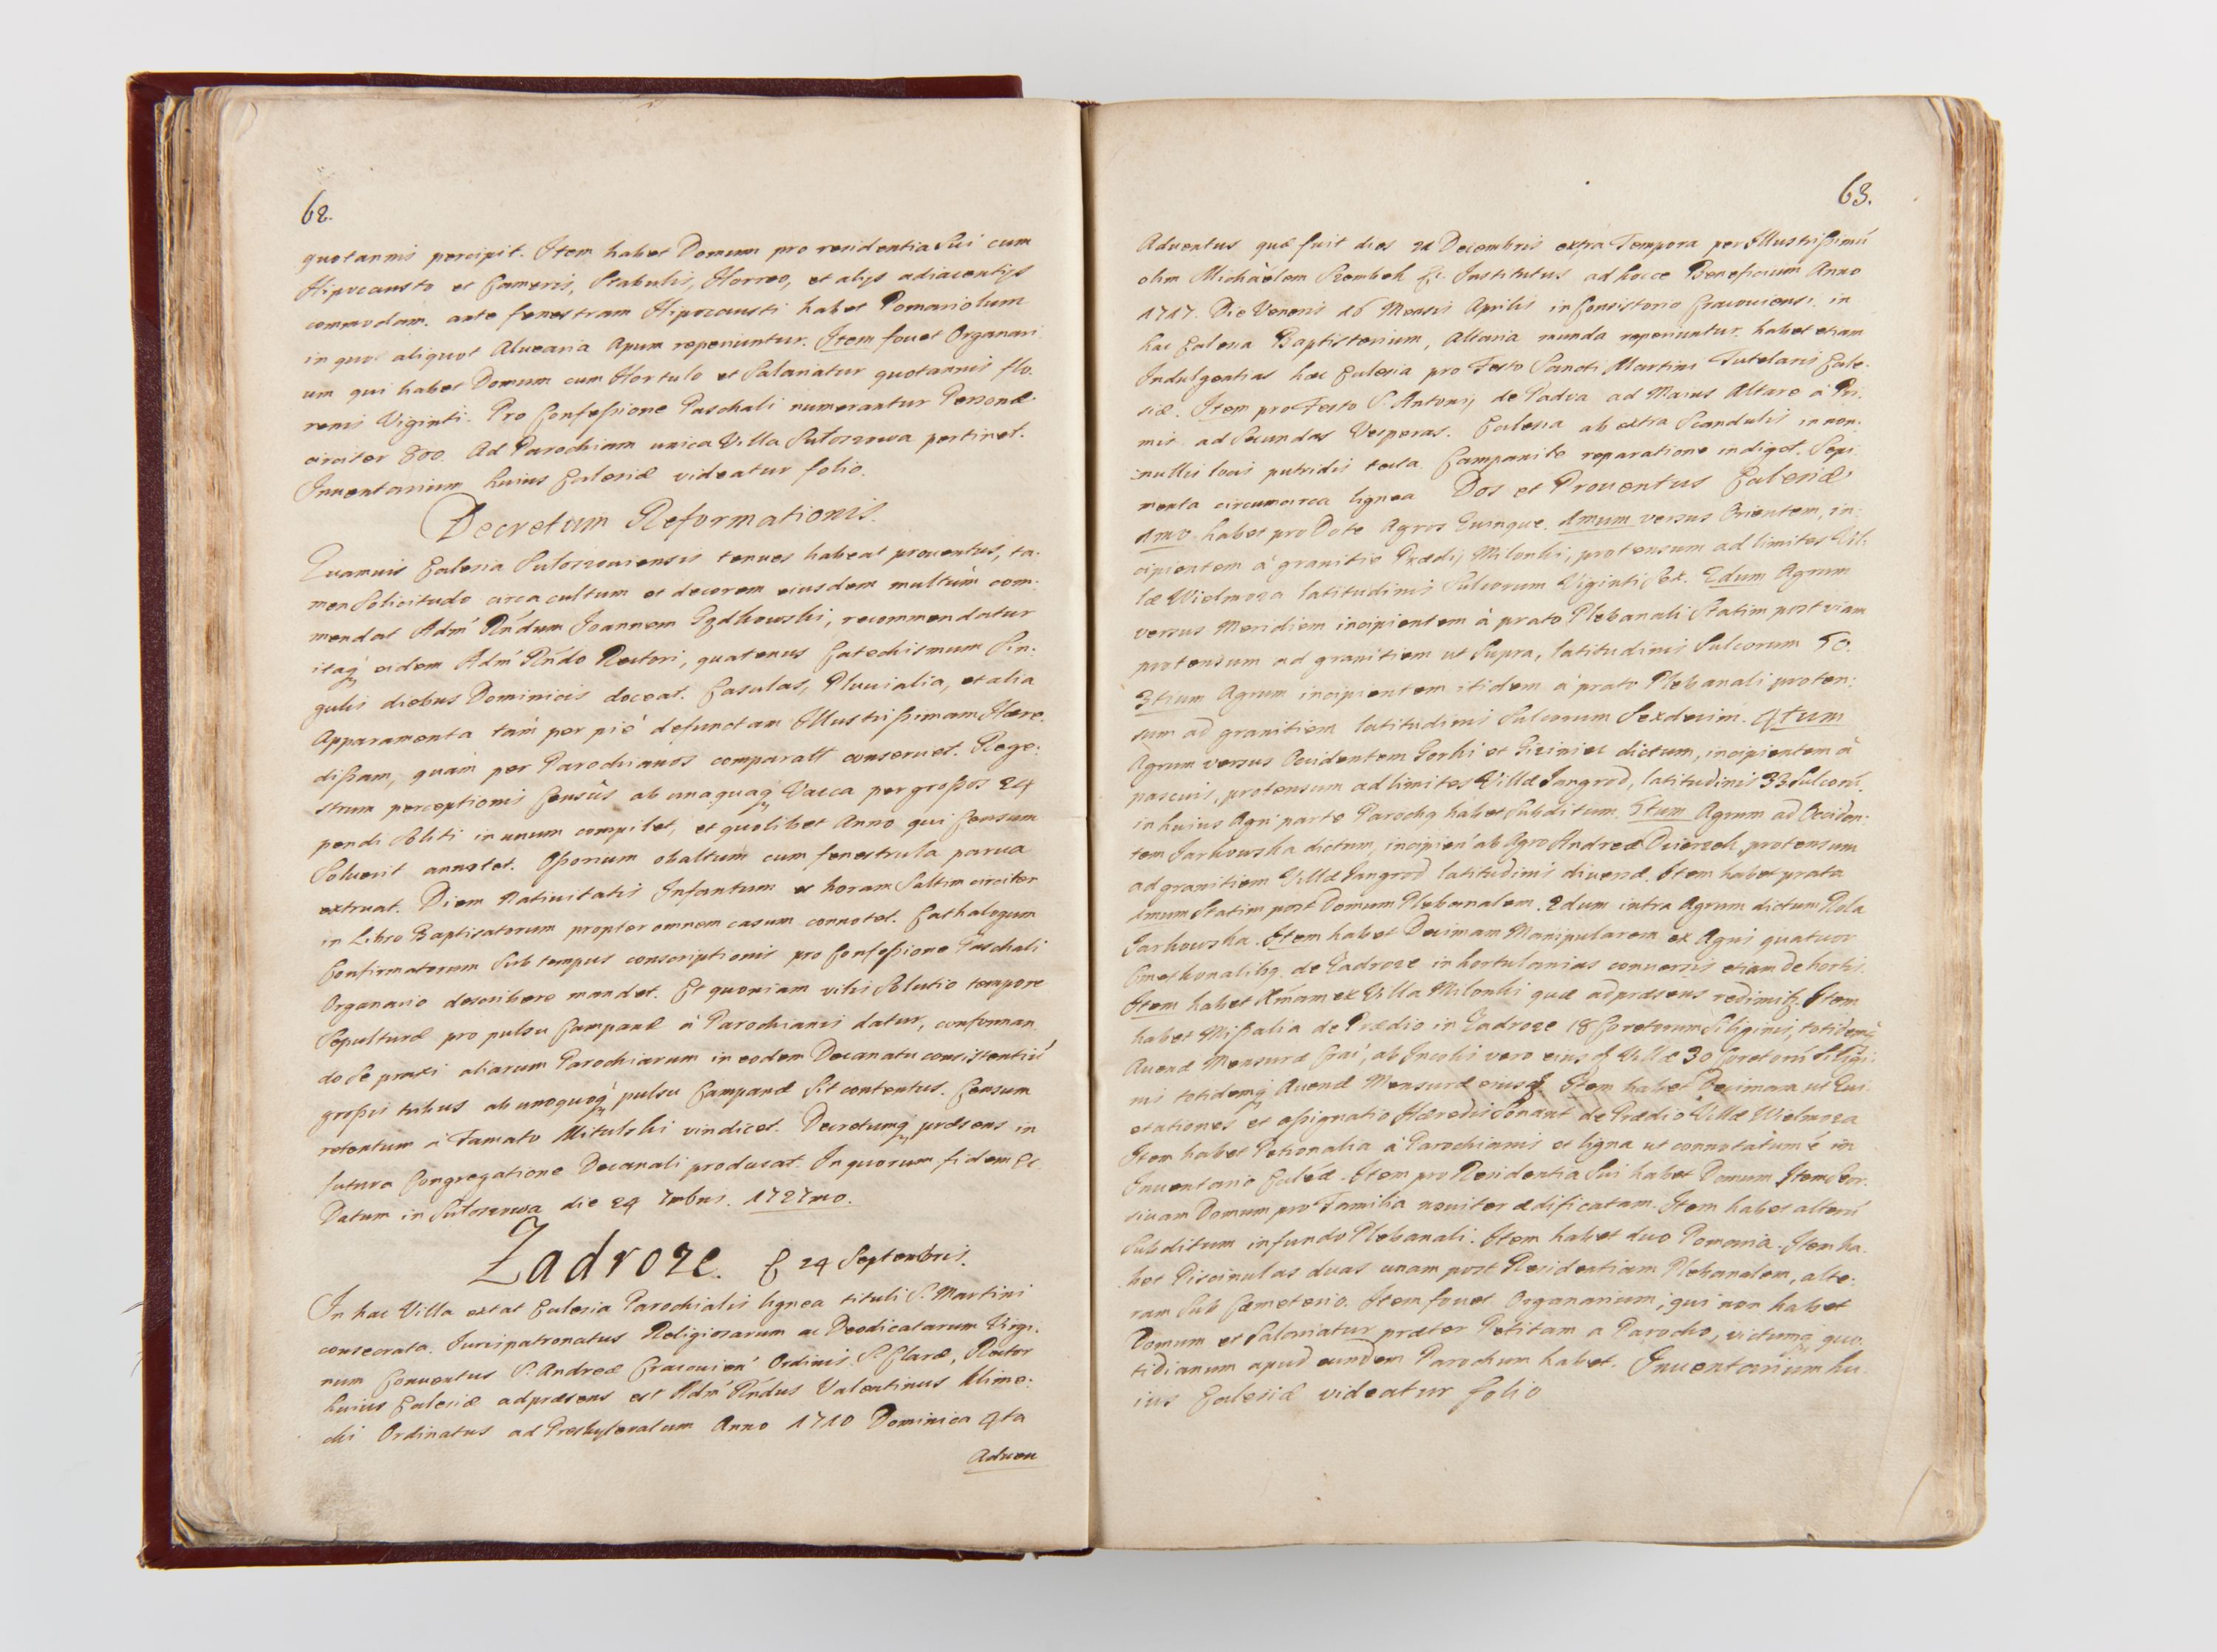 62.
quotannis percipit. Item habet Domum pro residentia Sui cum
Hipocausto et Cameris, Stabulis, Horreo, et alijs adiacentijs
commodam. ante fenestram Hipocausti habet Pomariolum
in quo aliquot Alvearia Apum reperiuntur. Item fouet Organari
um qui habet Domum cum Hortulo et Salariatur quotannis flo.
renis Viginti. Pro Confessione Paschali numerantur Personæ
circiter 800. Ad Parochiam unica Villa Sułoszowa pertinet.
Inventarium huius Ecclesiæ videatur folio.
Decretum Reformationis.
Quamuis Ecclesia Sułoszoviensis tenues habeat prouentus, ta-
men Solicitudo circa cultum et decorem eiusdem multùm com-
mendat Adm Rndum Joannem, recommendatur
itaq eidem Adm Rndo Rectori, quatenus Catechismum Sin-
gulis diebus Dominicis doceat. Casulas, Pluuialia, et alia
Apparamenta tám per piè defunctam Illustrissimam Hære-
dissam, quám per Parochianos comparatt conseruet. Rege-
strum perceptionis Censûs ab unaquaq Vacca per grossos 24
pendi Soliti in unum compilet, et quolibet Anno qui Censum
Soluerit annotet. Ossorium obaltum cum fenestrula parua
extruat. Diem Natiuitatis Infantum et horam Saltim circiter
in Libro Baptisatorum propter omnem casum connotet. Cathalogum
Confirmatorum Sub tempus conscriptionis pro Confessione Paschali
Organario describere mandet. Et quoniam vilis Solutio tempore
Sepulturæ pro pulsu Campanæ á Parochianis datur, conforman
do Se praxi aliarum Parochiarum in eodem Decanatu consistentiú
grossis tribus ab unoquoq pulsu Campanæ Sit contentus. Censum
retentum á Famato Mitulski vindicet. Decretumq præsens in
futura Congregatione Decanali producat. In quorum fidem &c
Datum in Sułoszowa die 24 7mbris. 1727mo.
Zadroze. 24 Septembris.
In hac Villa extat Ecclesia Parochialis lignea tituli S. Martini
consecrata. Jurispatronatus Religiosarum ac Deodicatarum Virgi-
num Conuentus S. Andreæ Cracouien Ordinis S. Claræ, Rector
huius Ecclesiæ adpræsens est Adm Rndus Valentinus Klime-
cki Ordinatus ad Presbyteratum Anno 1710 Dominica 4ta
Aduen
63.
Aduentus quæ fuit dies 21 Decembris extra Tempora per Illustrissimú
olim Michàelem Szembek &c. Institutus ad hocce Beneficium Anno
1717. Die Veneris 16 Mensis Aprilis in Consistorio Cracouiensi. in
hac Ecclesia Baptisterium, Altaria munda reperiuntur. habet etiam
Indulgentias hæc Ecclesia pro Festo Sancti Martini Tutelaris Eccle-
siæ. Item pro Festo S. Antonij de Padva ad Maius Altare á Pri-
mis ad Secundas Vesperas. Ecclesia ab extra Scandulis in non-
nullis locis putridis tecta. Campanile reparatione indiget. Sepi
menta circumcirca lignea Dos et Prouentus Ecclesiæ
1mo. habet pro Dote Agros Quinque. 1mum versus Orientem, in-
cipientem á granitie Prædij Milonki, protensum ad limites Vil-
læ Wielmoza latitudinis Sulcorum Viginti Sex. 2dum Agrum
versus Meridiem incipientem á prato Plebanali Statim post viam
protensum ad granitiem ut Supra, latitudinis Sulcorum 50.
3tium Agrum incipientem itidem á prato Plebanali proten-
sum ad granitiem latitudinis Sulcorum Sexdecim. 4tum
Agrum versus Occidentem Gorki et dictum, incipientem á
pascuis, protensum ad limites Villæ Jangrod, latitudinis 33 Sulcorú.
in huius Agri parte Parochq habet Subditum. 5tum Agrum ad Occiden-
tem Jarkowska dictum, incipien ab Agro Andreæ protensum
ad granitiem Villæ Jangrod latitudinis diuersæ. Item habet prata
1mum Statim post Domum Plebanalem. 2dum intra Agrum dictum Rola
Jarkowska. Item habet Decimam Manipularem ex Agris quatuor
Cmethonalibq. de Zadroze in hortulanias conuersis etiam de hortis.
Item habet Xmam ex Villa Milonki quæ adpræsens redimitr. Item
habet Missalia de Prædio in Zadroze 18 Coretorum Siliginis, totidemq
Auenæ Mensuræ Crac, ab Incolis vero eiusd Villæ 30 Coretorú Siligi-
nis totidemq Auenæ Mensuræ eiusd. Item habet Decimam ut Qui-
etationes et assignatio Hæredis Sonant de Prædio Villæ Wielmoza
Item habet Petionalia á Parochianis et ligna ut connotatum é in
Inuentario Eccléæ. Item pro Residentia Sui habet Domum Item Seor-
siuam Domum pro Familia nouiter ædificatam. Item habet alterú
Subditum in fundo Plebanali. Item habet duo Pomaria. Item ha-
bet Piscinulas duas unam post Residentiam Plebanalem, alte-
ram Sub Cœmeterio. Item fouet Organarium, qui non habet
Domum et Salariatur præter Petitam a Parocho, victumq quo-
tidianum apud eundem Parochum habet. Inuentarium hu-
ius Ecclesiæ videatur folio